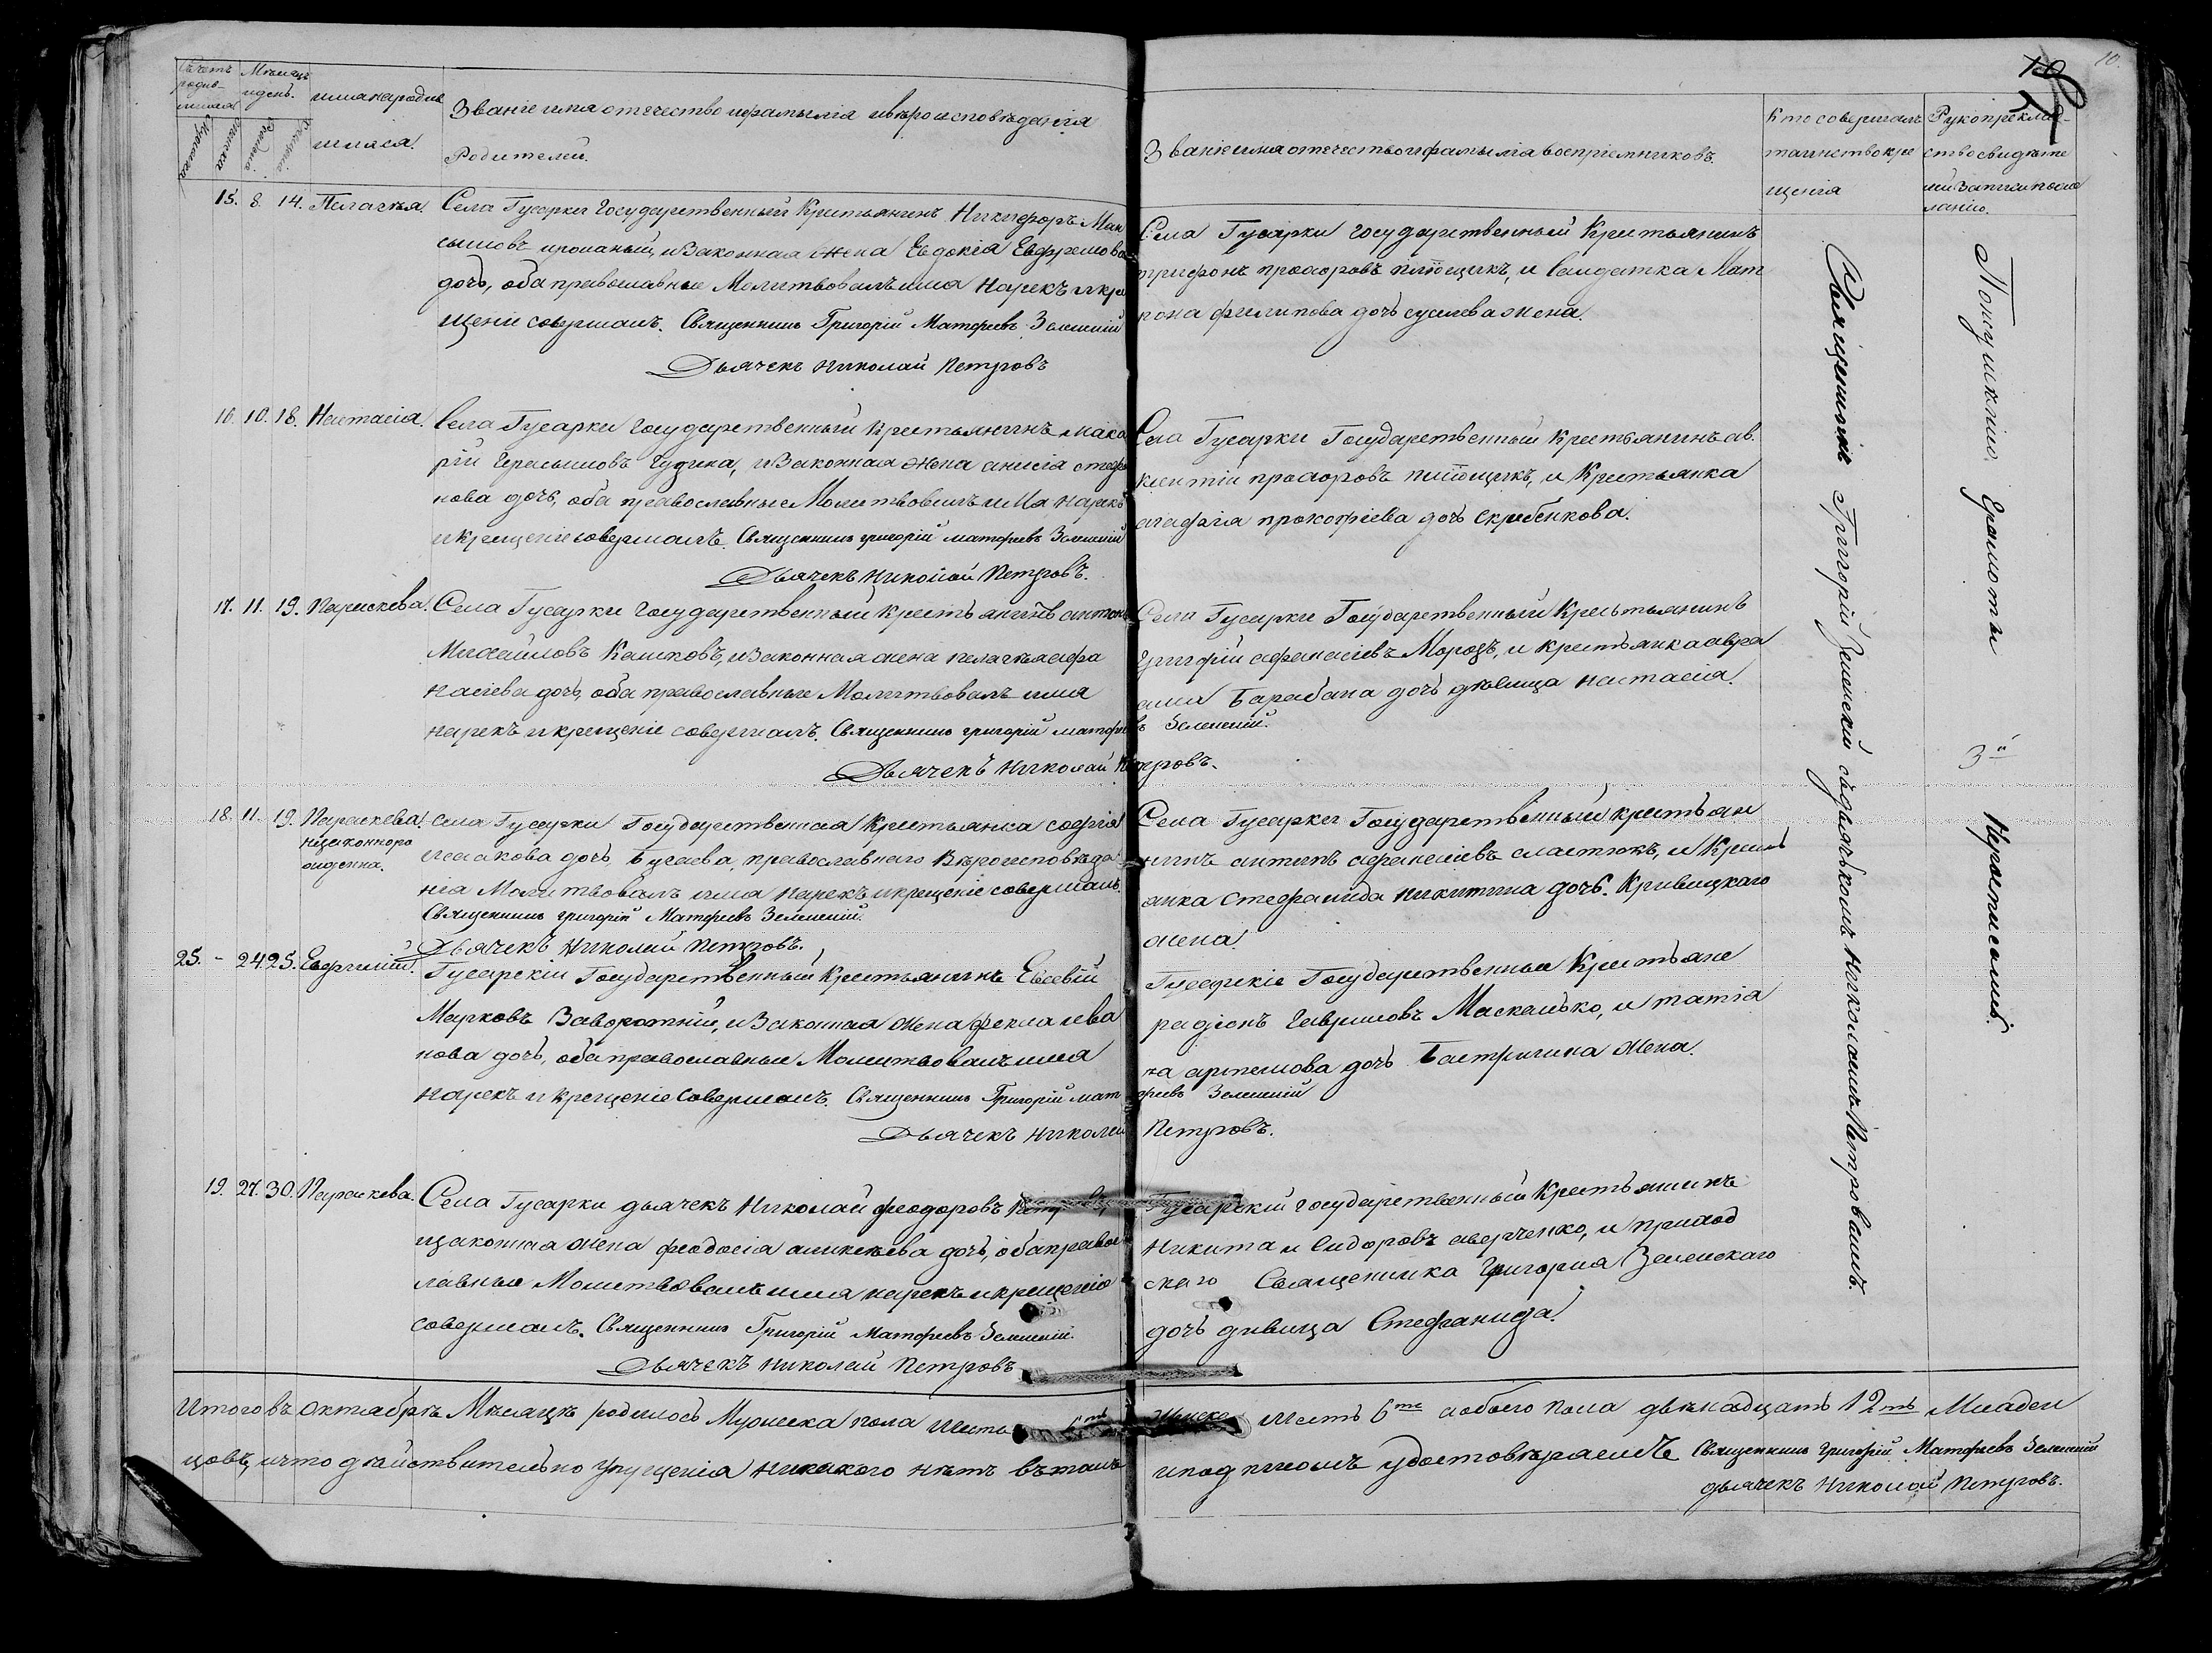 10
10.
Счетъ родив-
шихся
Мѣсяцъ
и день.
имя народив
шияся.
Званіе имя отечество и фамилія и вѣроисповѣданія
Родителей.
Званіе имя отечество и фамилія воспріемниковъ.
Кто совершалъ
таинство кре
щенія
Рукоприклад-
ство свидѣте
лей записи по же
ланію.
15. 8. 14. Пелагѣя. Села Гусарки Государственный Крестьянинъ Никифоръ Мак
симовъ и законная жена Евдокія Евфремова
дочь, оба православные Молитвовалъ имя Нарекъ и кре
щеніе совершалъ. Священникъ Григорій Матфеевъ Зеленскій
Дьячекъ Николай Петровъ
Села Гусарки Государственный Крестьянинъ
трифонъ прохоровъ и Салдатка Мат
рона филипова дочь жена.
16. 10. 18. Настасія. Села Гусарки Государственный Крестьянинъ мака
рій Герасимовъ Гудина, и Законная жена анисія стефа
нова дочь, оба православные Молитвовалъ имя нарекъ
и крещеніе совершалъ. Священникъ григорій матфеевъ Зеленскій
Дьячекъ Николай Петровъ.
Села Гусарки Государственный Крестьянинъ ав.
ксентій прохоровъ и Крестьянка
агафія прокофіева дочь Скрибенкова.
17. 11. 19. Параскева. Села Гусарки Государственный Крестьянинъ антонъ
Михайловъ Кашковъ, и Законная жена пелагѣя афа
насіева дочь, оба православные Молитвовалъ имя
нарекъ и крещеніе совершалъ. Священникъ григорій матфеевъ Зеленскій.
Дьячекъ Николай Петровъ.
Села Гусарки Государственный Крестьянинъ
Григорій афанасіевъ Морозъ, и крестьянка авра
ама Барабаха дочь дѣвица настасія.
18. 11. 19. Параскева.
незаконноро
жденна.
Села Гусарки Государственная Крестьянка софія
исакова дочь Бугаева, православнаго Вѣроисповѣда
нія Молитвовалъ имя нарекъ и крещеніе совершалъ.
Священникъ григорій Матфеевъ Зеленскій.
Дьячекъ Николай Петровъ.
Села Гусарки Государственный крестьян
нинъ антипъ афанасіевъ сластюкъ, и Кресть
янка Стефанида Никитина дочь. Кривицкаго
жена.
25. - 24. 25. Евфимій. Гусарскій Государственный Крестьянинъ Евсевій
Марковъ Заворотній, и Законная жена фекла ива
нова дочь, оба православные Молитвовалъ имя
нарекъ и крещеніе Совершалъ. Священникъ Григорій матфеевъ Зеленскій
Дьячекъ Николай Петровъ.
Гусарскіе Государственные Крестьяне
радіонъ Гавриловъ Маскалько, и татія
на артемова дочь Бастричина жена.
19. 27. 30. Параскева. Села Гусарки дьячекъ Николай феодоровъ
и законная жена феодосія алексѣева дочь, оба правос
лавные Молитвовалъ имя нарекъ и крещеніе
совершалъ. Священникъ Григорій Матфеевъ Зеленскій.
Дьячекъ Николай Петровъ
Гусарскій государственный Крестьянинъ
Никита и Сидоровъ аверченко, и приход
скаго Священника Григорія Зеленскаго
дочь дивица Стефанида.
Священникъ Григорій Зеленскій съ дьячкомъ Николаемъ Петровымъ.
По неумѣнію Грамоты
3й
Итого въ октябрѣ Мѣсяцѣ родилось Мужеска пола шесть 6ть Женска шесть 6ть и обоего пола двѣнадцать 12ть Младен
цовъ, и что дѣйствительно упущенія никакого нѣтъ въ томъ и подписомъ удостовѣряемъ Священникъ григорій Матфеевъ Зеленскій
дьячекъ Николай Петровъ.